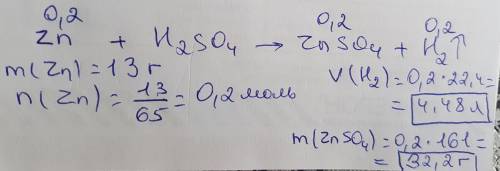 0,2 0,2 0,2
Zn + H₂SO₄ → ZnSO₄ + H₂↑
m(Zn) = 13 г
n(Zn) = 13/65 = 0,2 моль
V(H₂) = 0,2 · 22,4 =
= 4,48 л
m(ZnSO₄) = 0,2 · 161 =
= 32,2 г